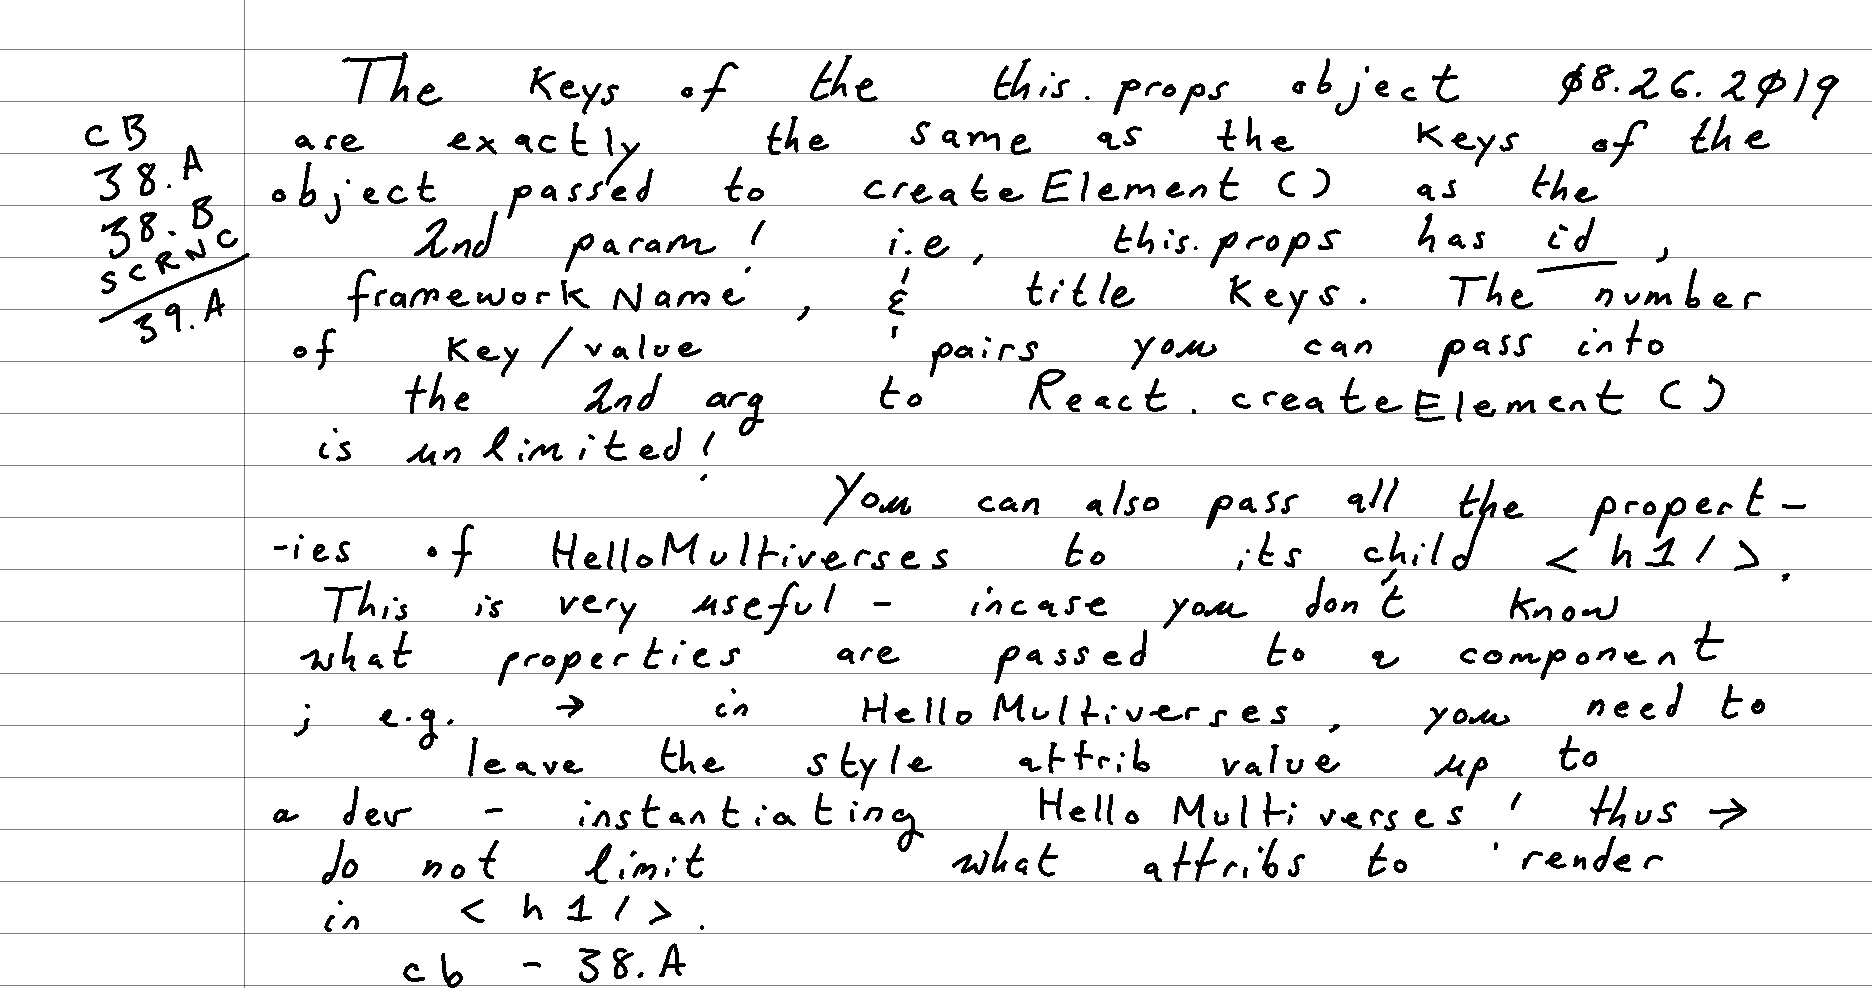 The keys of the this.props object 08.26.2019
CB
are exactly the same as the keys of the
38.A
object passed to createElement () as the
38.B
2nd param! i.e, this.props has id,
SCRNC
frameworkName, & title keys. The number
39.A
of key/value pairs you can pass into
the 2nd arg to React.createElement ()
is unlimited!
You can also pass all the propert-
-ies of HelloMultiverses to its child <h1/>.
This is very useful - incase you don't know
what properties are passed to a component
; e.g. → in HelloMultiverses, you need to
leave the style attrib value up to
a dev - instantiating HelloMultiverses! thus →
do not limit what attribs to render
in <h1/>.
cb - 38.A